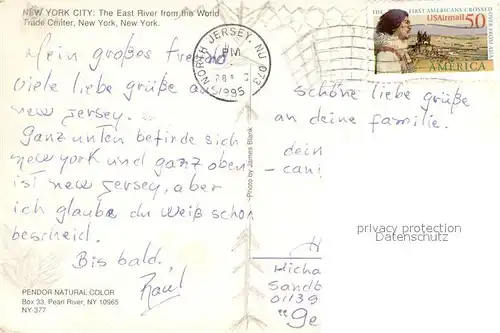 NEW YORK CITY: The East River from the World
Trade Center, New York, New York.
Mein großes Freund.
Viele liebe grüße aus
new Jersey.
Ganz unten befinde sich
new york und ganz oben
ist new Jersey, aber
ich glaube du weiß schon
bescheid.
Bis bald.
Raúl
PENDOR NATURAL COLOR
Box 33, Pearl River, NY 10965
NY-377
Photo by James Blank
NORTH JERSEY, NJ 073
PM
1995
FIRST AMERICANS CROSSED
OVER FROM ASIA
USAirmail 50
AMERICA
schöne liebe grüße
an deine familie.
dein
- cani
privacy protection
Micha
Sandb
01139
"Ge